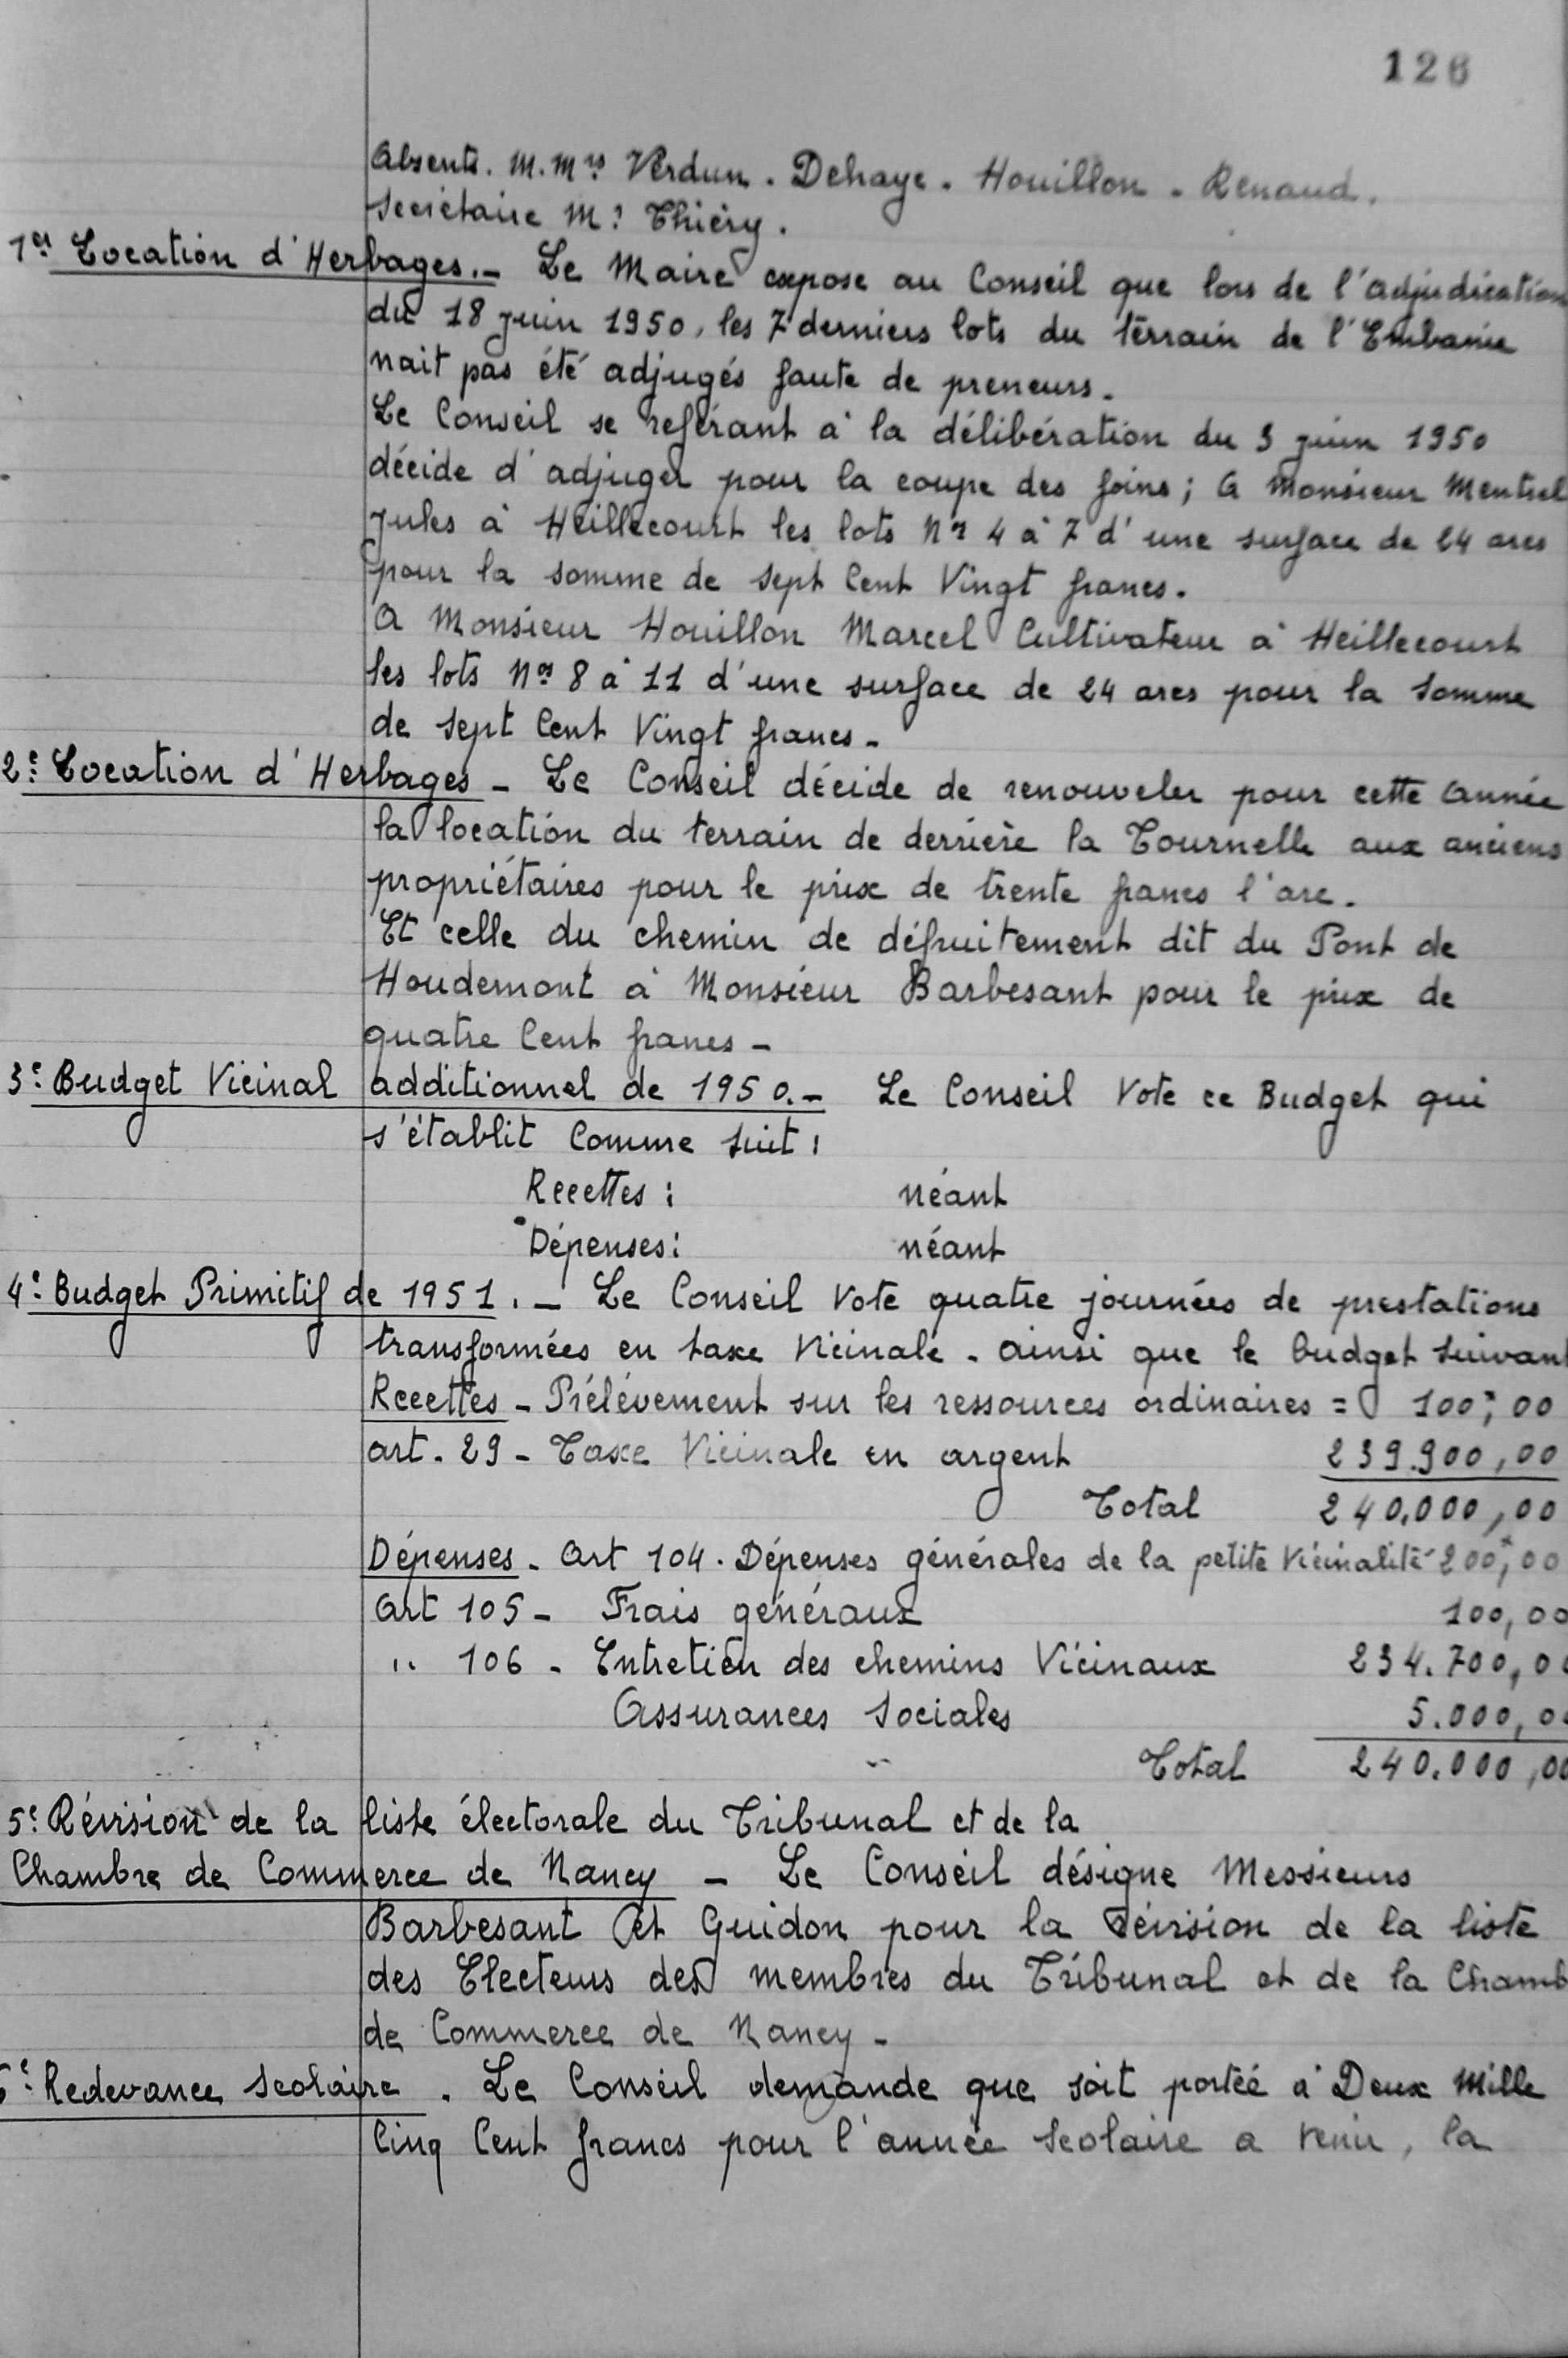 126
Absents. M.Mrs Verdun. Dehaye. Houillon. Renaud.
Secrétaire Mr Thiéry.
1er Location d'Herbages. - Le Maire expose au Conseil que lors de l'adjudication
du 18 juin 1950, les 7 derniers lots du terrain de l'Embanie
nait pas été adjugés faute de preneurs.
Le Conseil se reférant à la délibération du 3 juin 1950
décide d'adjuger pour la coupe des foins; A Monsieur Mentrel
Jules à Heillecourt les lots Nos 4 à 7 d'une surface de 24 ares
pour la somme de Sept Cent Vingt francs.
A Monsieur Houillon Marcel Cultivateur à Heillecourt
les lots Nos 8 à 11 d'une surface de 24 ares pour la Somme
de Sept Cent Vingt francs -
2e Location d'Herbages - Le Conseil décide de renouveler pour cette année
la location du terrain de derrière la Tournelle aux anciens
propriétaires pour le prix de trente francs l'are.
Et celle du chemin de défruitement dit du Pont de
Houdemont à Monsieur Barbesant pour le prix de
quatre Cent francs -
3e Budget Vicinal additionnel de 1950. - Le Conseil Vote ce Budget qui
s'établit Comme Suit :
Recettes : néant
Dépenses : néant
4e Budget Primitif de 1951. - Le Conseil Vote quatre journées de prestations
transformées en taxe Vicinale. ainsi que le budget Suivant
Recettes - Prélévement sur les ressources ordinaires = 100,00
art. 29 - Taxe Vicinale en argent 239.900,00
Total 240.000,00
Dépenses - Art 104. Dépenses générales de la petite Vicinalité 200,00
Art 105 - Frais généraux 100,00
" 106 - Entretien des chemins Vicinaux 234.700,00
Assurances Sociales 5.000,00
Total 240.000,00
5e Révision de la liste électorale du Tribunal et de la
Chambre de Commerce de Nancy - Le Conseil désigne Messieurs
Barbesant et Guidon pour la Révision de la liste
des Electeurs des membres du Tribunal et de la Chamb
de Commerce de Nancy -
6e Redevance Scolaire . Le Conseil demande que soit portée à Deux Mille
Cinq Cent francs pour l'année Scolaire a venir, la